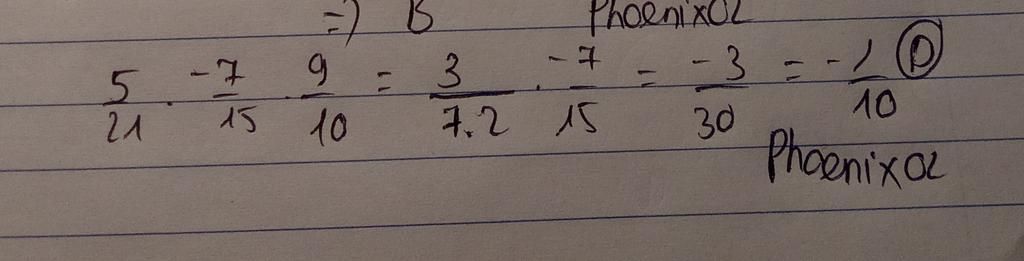 =) B PhoenixOL
5/21 . -7/15 . 9/10 = 3/7.2 . -7/15 = -3/30 = -1/10 D
PhoenixOL